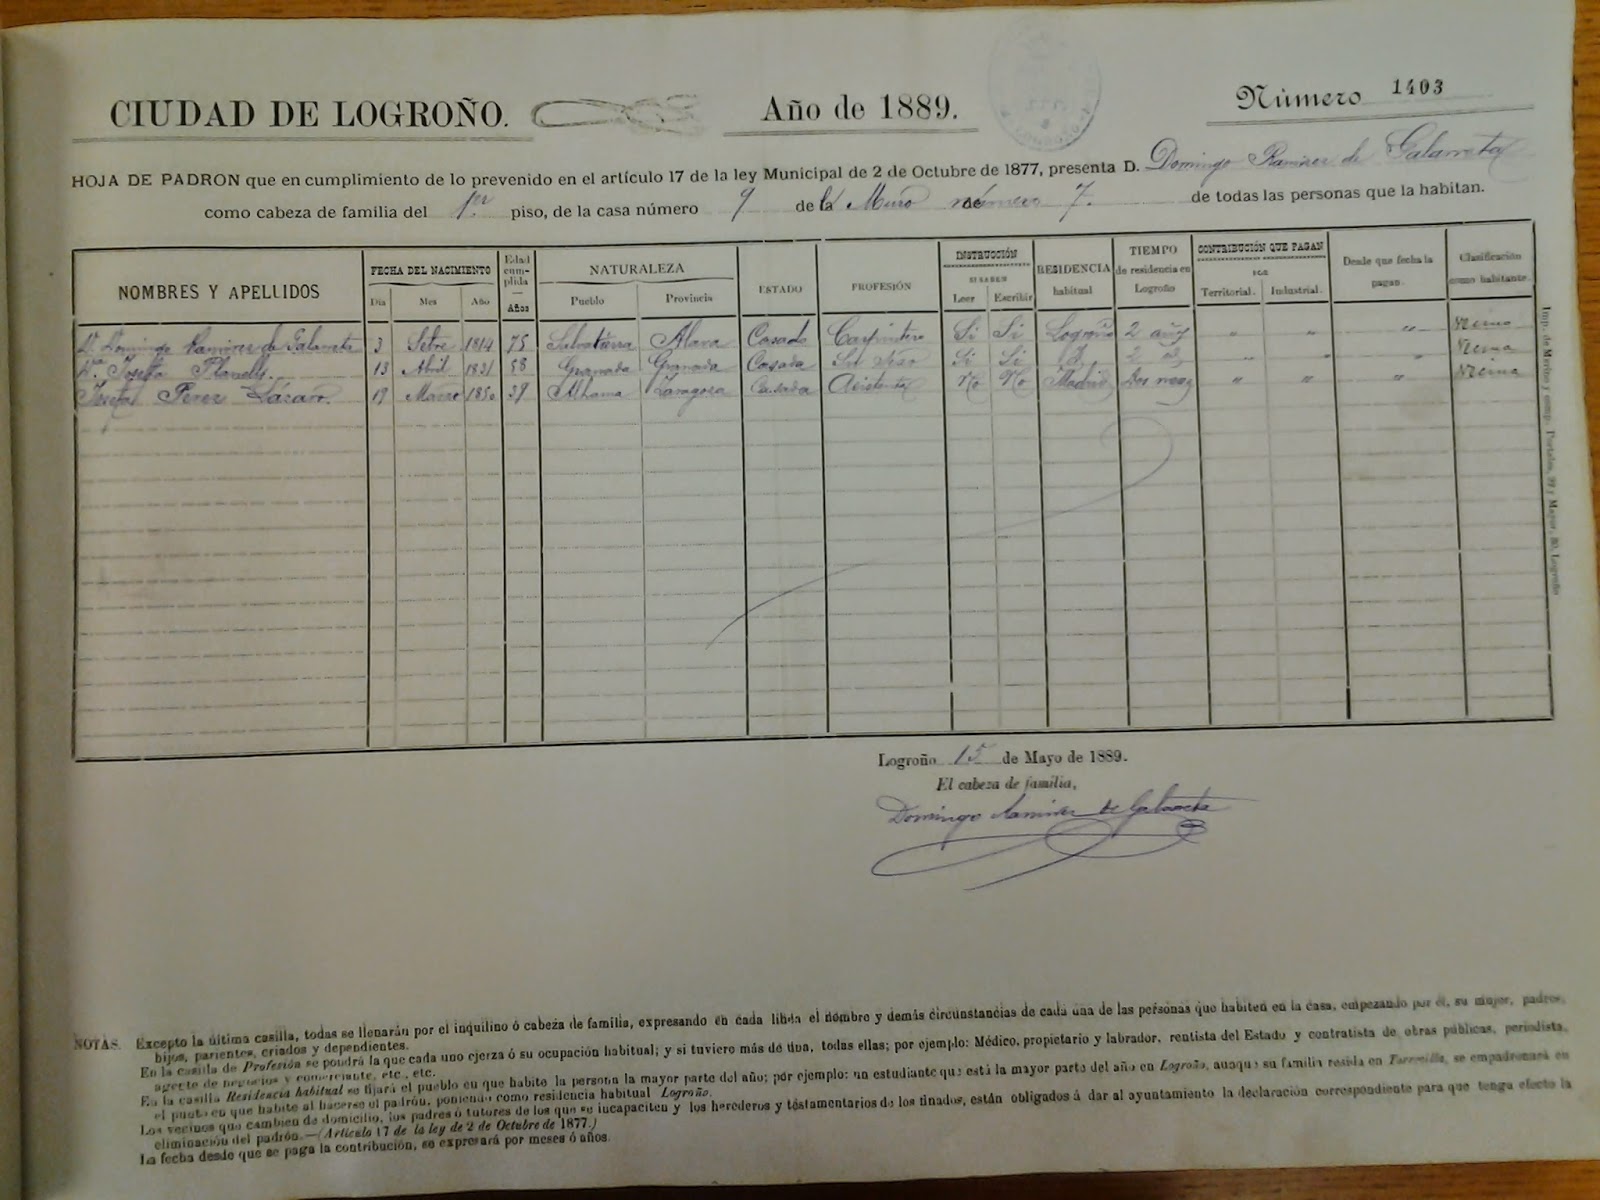 CIUDAD DE LOGROÑO. Año de 1889. Número 1403
HOJA DE PADRON que en cumplimiento de lo prevenido en el artículo 17 de la ley Municipal de 2 de Octubre de 1877, presenta D. Domingo Ramirez de Galarreta
como cabeza de familia del 1er piso, de la casa número 9 de la Muro número 7. de todas las personas que la habitan.
NOMBRES Y APELLIDOS FECHA DEL NACIMIENTO Día Mes Año Edad cumplida — Años NATURALEZA Pueblo Provincia ESTADO PROFESIÓN INSTRUCCIÓN SI SABEN Leer Escribir RESIDENCIA habitual TIEMPO de residencia en Logroño CONTRIBUCIÓN QUE PAGAN POR Territorial. Industrial. Desde que fecha la pagan. Clasificación como habitante.
Dn. Domingo Ramirez de Galarreta 3 Setre 1814 75 Salvatierra Alava Casado Carpintero Si Si Logroño 2 años " " " Vecino
Dª. Josefa Planells 13 Abril 1831 58 Granada Granada Casada Su Sexo Si Si 2 " " " Vecina
Perez Lázaro 19 Marzo 1850 39 Alhama Zaragoza Casada Asistenta No No Madrid Dos meses " " " Vecina
Logroño 15 de Mayo de 1889.
El cabeza de familia,
Domingo Ramirez de Galarreta
Imp. de Merino y comp., Portales, 22 y Mayor, 80, Logroño
NOTAS. Excepto la última casilla, todas se llenarán por el inquilino ó cabeza de familia, expresando en cada línea el nombre y demás circunstancias de cada una de las personas que habiten en la casa, empezando por él, su mujer, padres,
hijos, parientes, criados y dependientes.
En la casilla de Profesión se pondrá la que cada uno ejerza ó su ocupación habitual; y si tuviere más de una, todas ellas; por ejemplo: Médico, propietario y labrador, rentista del Estado y contratista de obras públicas, periodista,
agente de negocios y comerciante, etc., etc.
En la casilla Residencia habitual se fijará el pueblo en que habite la persona la mayor parte del año; por ejemplo: un estudiante que está la mayor parte del año en Logroño, aunque su familia resida en Torrecilla, se empadronará en
el punto en que habite al hacerse el padrón, poniendo como residencia habitual Logroño.
Los vecinos que cambien de domicilio, los padres ó tutores de los que se incapaciten y los herederos y testamentarios de los finados, están obligados á dar al ayuntamiento la declaración correspondiente para que tenga efecto la
eliminación del padrón.—(Artículo 17 de la ley de 2 de Octubre de 1877.)
La fecha desde que se paga la contribución, se expresará por meses ó años.